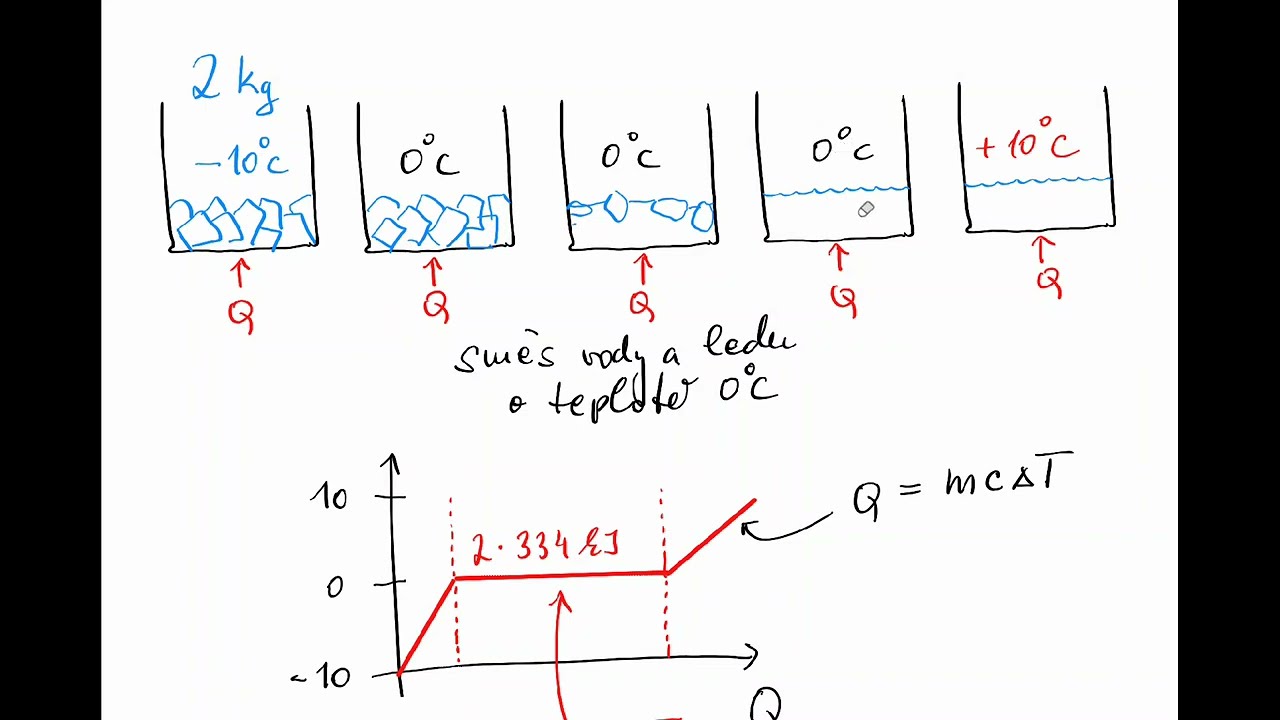 2 kg
-10°C
0°C
0°C
0°C
+10°C
Q
Q
Q
Q
Q
směs vody a ledu
o teplotě 0°C
10
2·334 kJ
Q = mcΔT
0
-10
Q